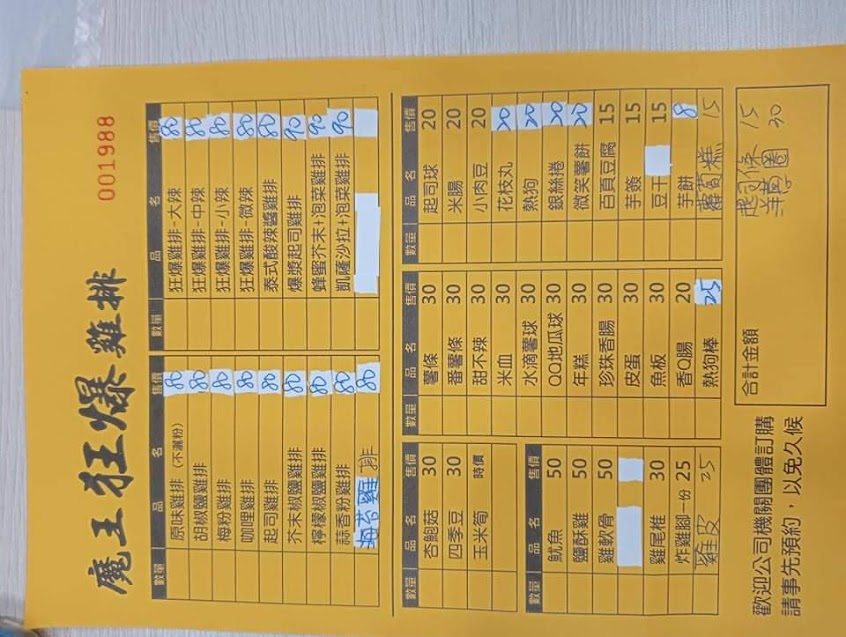 魔王狂爆雞排
001988
數量 品名 售價
原味雞排(不灑粉) 80
胡椒鹽雞排 80
梅粉雞排 80
咖哩雞排 80
起司雞排 80
芥末椒鹽雞排 80
檸檬椒鹽雞排 80
蒜香粉雞排 80
海苔雞排 80
數量 品名 售價
狂爆雞排-大辣 80
狂爆雞排-中辣 80
狂爆雞排-小辣 80
狂爆雞排-微辣 80
泰式酸辣醬雞排 80
爆漿起司雞排 90
蜂蜜芥末+泡菜雞排 90
凱薩沙拉+泡菜雞排 90
數量 品名 售價
杏鮑菇 30
四季豆 30
玉米筍 時價
數量 品名 售價
魷魚 50
鹽酥雞 50
雞軟骨 50
雞尾椎 30
炸雞腳一份 25
雞皮 35
數量 品名 售價
薯條 30
番薯條 30
甜不辣 30
米血 30
水滴薯球 30
QQ地瓜球 30
年糕 30
珍珠香腸 30
皮蛋 30
魚板 30
香Q腸 20
熱狗棒 25
數量 品名 售價
起司球 20
米腸 20
小肉豆 20
花枝丸 20
熱狗 20
銀絲捲 20
微笑薯餅 20
百頁豆腐 15
芋簽 15
豆干 15
芋餅 8
蘿蔔糕 15
歡迎公司機關團體訂購
請事先預約,以免久候
合計金額
起司條 15
洋蔥圈 30